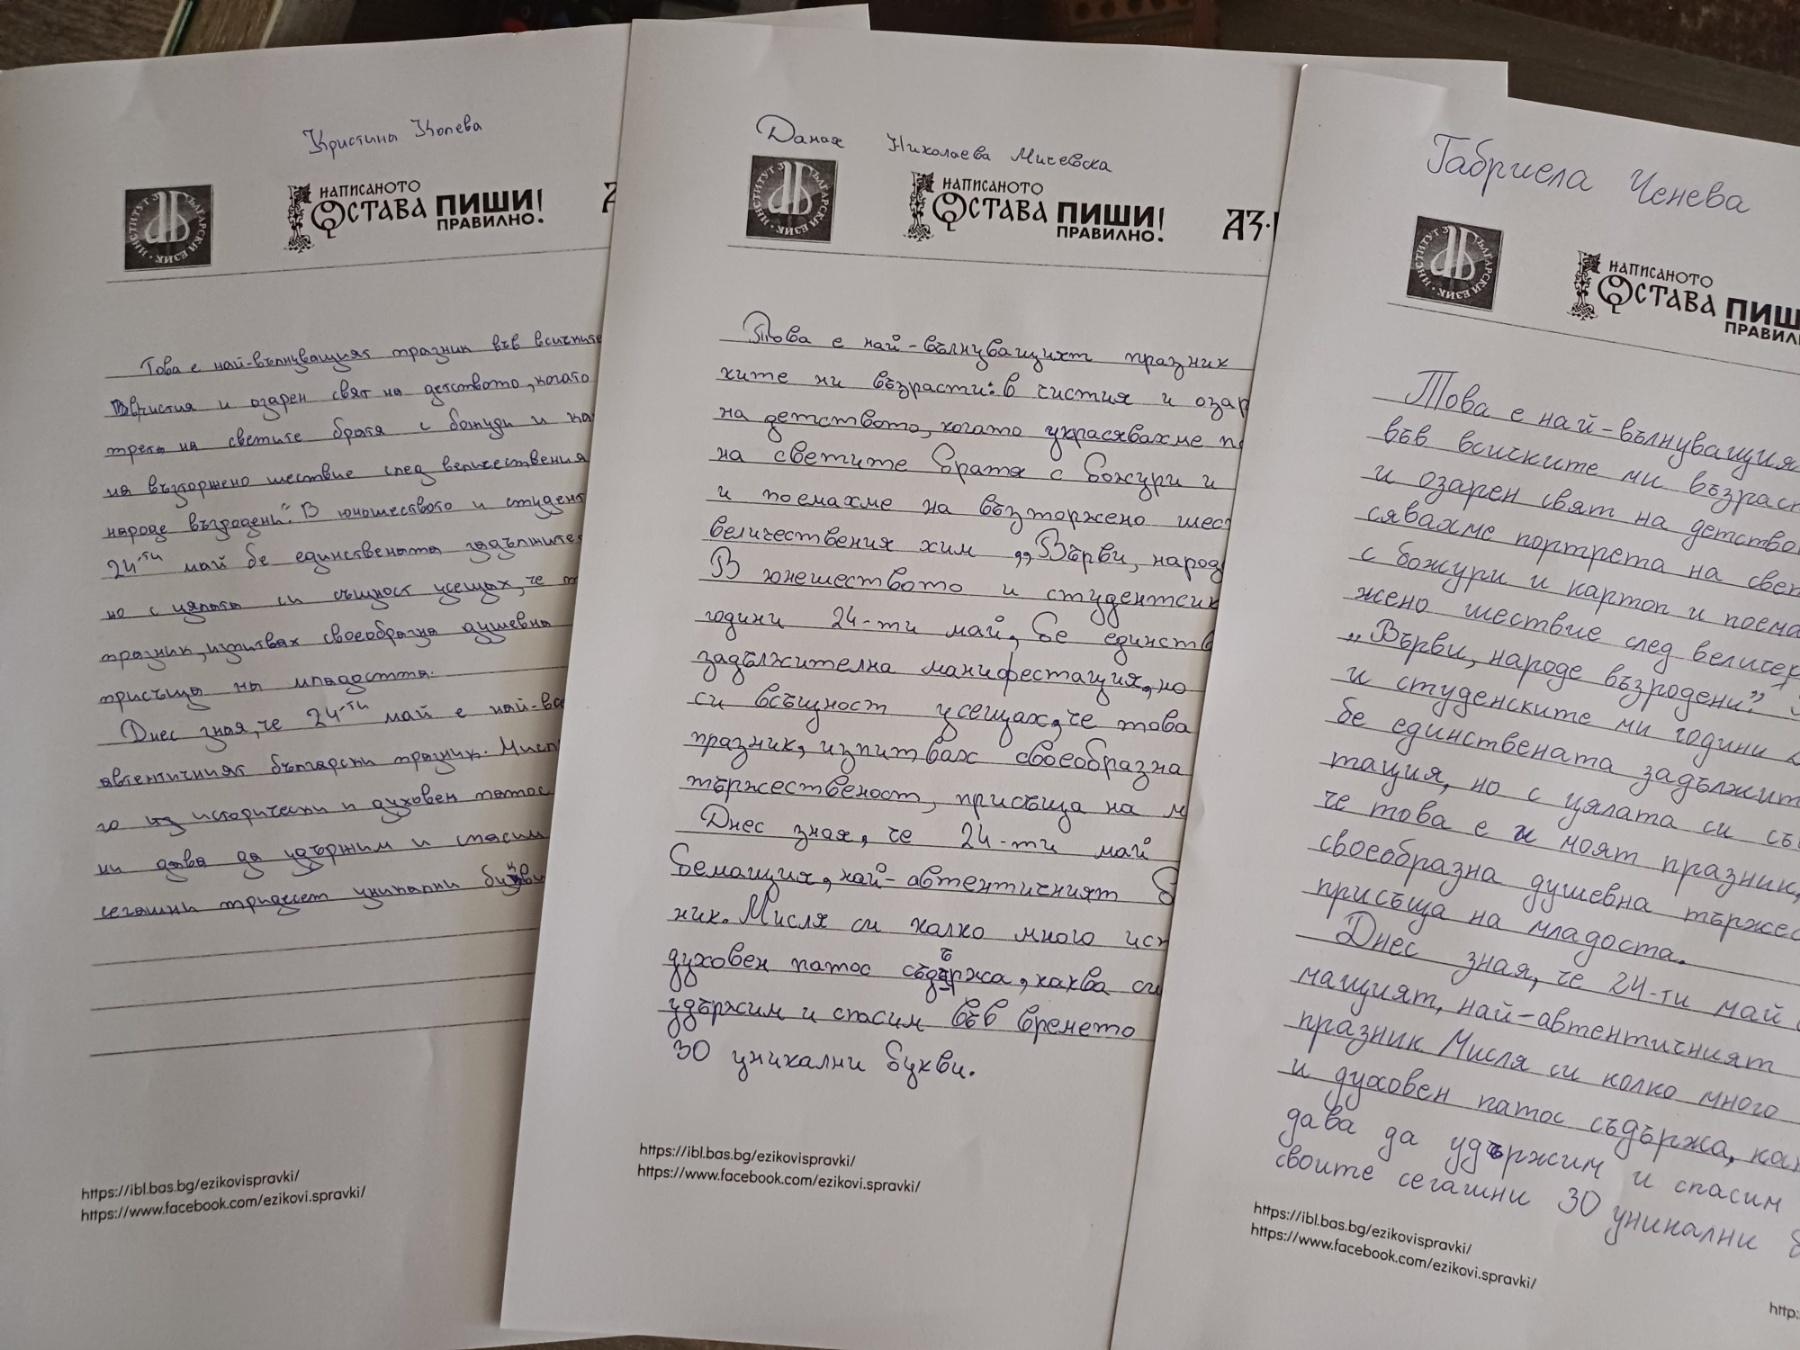 Кристина Колева
ИНСТИТУТ ЗА БЪЛГАРСКИ ЕЗИК
НАПИСАНОТО
ОСТАВА ПИШИ!
ПРАВИЛНО!
Това е най-вълнуващият празник във всичките
чистия и озарен свят на детството, когато
трета на светите братя с божури и
на възторжено шествие след величествения
народе възродени". В юношеството и студент
24-ти май бе единствената задължител
но с цялата си същност усещах, че
празник, изпитвах своеобразна душевна
присъща на младостта.
Днес зная, че 24-ти май е най-вс
автентичният български празник. Мисл
го исторически и духовен патос
ни дава да удържим и спасим
сегашни тридесет уникални букви
https://ibl.bas.bg/ezikovispravki/
https://www.facebook.com/ezikovi.spravki/
Даная Николаева Мичевска
ИНСТИТУТ ЗА БЪЛГАРСКИ ЕЗИК
НАПИСАНОТО
ОСТАВА ПИШИ!
ПРАВИЛНО!
АЗ
Това е най-вълнуващият празник
ките ни възрасти: в чистия и озар
на детството, когато украсявахме п
на светите братя с божури и
и поемахме на възторжено шест
величествения химн „Върви, народ
В юнешеството и студентски
години 24-ти май, бе единств
задължителна манифестация, но
си всъщност усещах, че това
празник, изпитвах своеобразна
тържественост, присъща на м
Днес зная, че 24-ти май
бемащия, най-автентичният б
ник. Мисля си колко много ист
духовен патос съдържа, каква си
удържим и спасим във времето
30 уникални букви.
https://ibl.bas.bg/ezikovispravki/
https://www.facebook.com/ezikovi.spravki/
Габриела Ченева
ИНСТИТУТ ЗА БЪЛГАРСКИ ЕЗИК
НАПИСАНОТО
ОСТАВА ПИШИ
ПРАВИЛН
Това е най-вълнуващия
във всичките ми възраст
и озарен свят на детство
сявахме портрета на свет
с божури и картон и поема
жено шествие след величе
„Върви, народе възродени".
и студенските ми години
бе единствената задължит
тация, но с цялата си съ
че това е и моят празник,
своеобразна душевна тържес
присъща на младоста.
Днес зная, че 24-ти май
мащият, най-автентичният
празник Мисля си колко много
и духовен патос съдържа, как
дава да удържим и спасим
своите сегашни 30 уникални б
https://ibl.bas.bg/ezikovispravki/
https://www.facebook.com/ezikovi.spravki/
http: